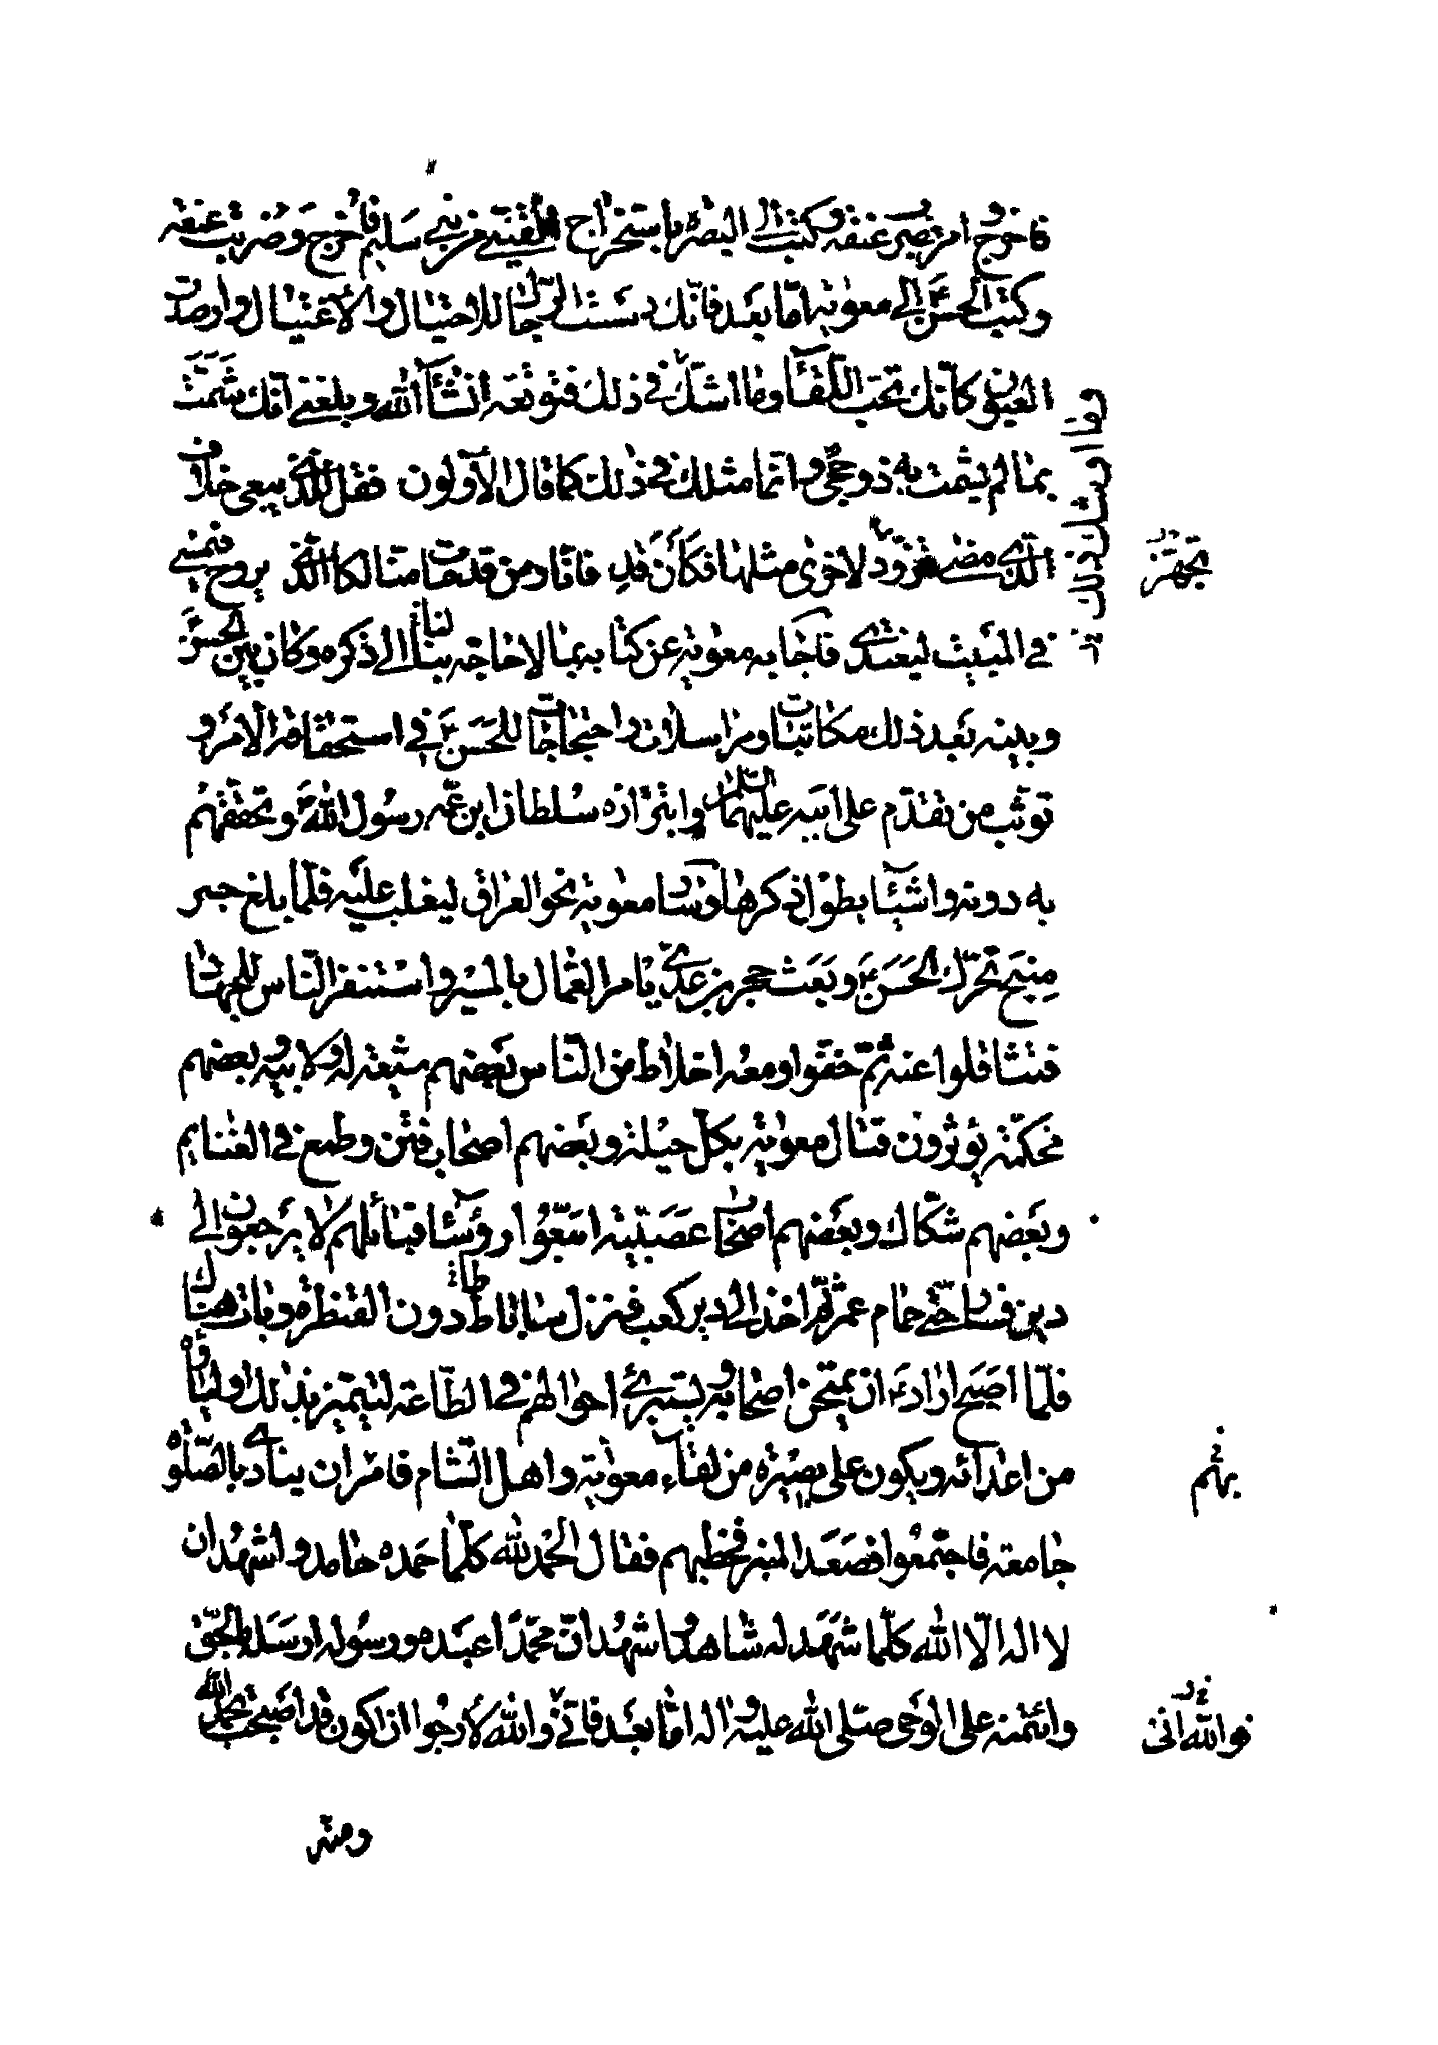 فاخرج وامر بضرب عنقه وكتب الى البصرة باستخراج القينى من بنى سليم فاخرج وضربت عنقه
وكتب الحسن ع الى معوية اما بعد فانك دسست الرجال للاحتيال والاغتيال وارصدت
العيون كانك تحب اللقاء وما اشك فى ذلك فتوقعه انشاء الله وبلغنى انك شمت
بما لم يشمت به ذو حجى وانما مثلك فى ذلك كما قال الاولون فقل للذى يبغى خلاف
الذى مضى تزود لاخرى مثلها فكان قد فانا ومن قد مات منا لكالذى يروح فيمسى
فى المبيت ليغتدى فاجابه معوية عن كتابه بما لا حاجة بنا الى ذكره وكان بين الحسن ع
وبينه بعد ذلك مكاتبات ومراسلات واحتجاجات للحسن ع فى استحقاقه الامر و
توثب من تقدم على ابيه عليهما السلام وابتزازه سلطان ابن عمه رسول الله ص وتحققهم
به دونه واشياء يطول ذكرها وسار معوية نحو العراق ليغلب عليه فلما بلغ جسر
منبج تحرك الحسن ع وبعث حجر بن عدى يامر العمال بالمسير واستنفر الناس للجهاد
فتثاقلوا عنه ثم خفوا ومعه اخلاط من الناس بعضهم شيعة له ولابيه وبعضهم
محكمة يؤثرون قتال معوية بكل حيلة وبعضهم اصحاب فتن وطمع فى الغنايم
وبعضهم شكاك وبعضهم اصحاب عصبية اتبعوا رؤساء قبائلهم لا يرجعون الى
دين فسار حتى حمام عمر ثم اخذ الى دير كعب فنزل ساباط دون القنطرة وبات هناك
فلما اصبح اراد ع ان يمتحن اصحابه ويستبرئ احوالهم فى الطاعة ليتميز بذلك اولياؤه
من اعدائه ويكون على بصيرة من لقاء معوية واهل الشام فامر ان ينادى بالصلوة
جامعة فاجتمعوا فصعد المنبر فخطبهم فقال الحمد لله كلما حمده حامد واشهد ان
لا اله الا الله كلما شهد له شاهد واشهد ان محمدا عبده ورسوله ارسله بالحق
وائتمنه على الوحى صلى الله عليه واله اما بعد فانى والله لارجوا ان اكون قد اصبحت بحمد الله
ومنه
وما اوشك ذلك
تجهز
بهم
فوالله انى